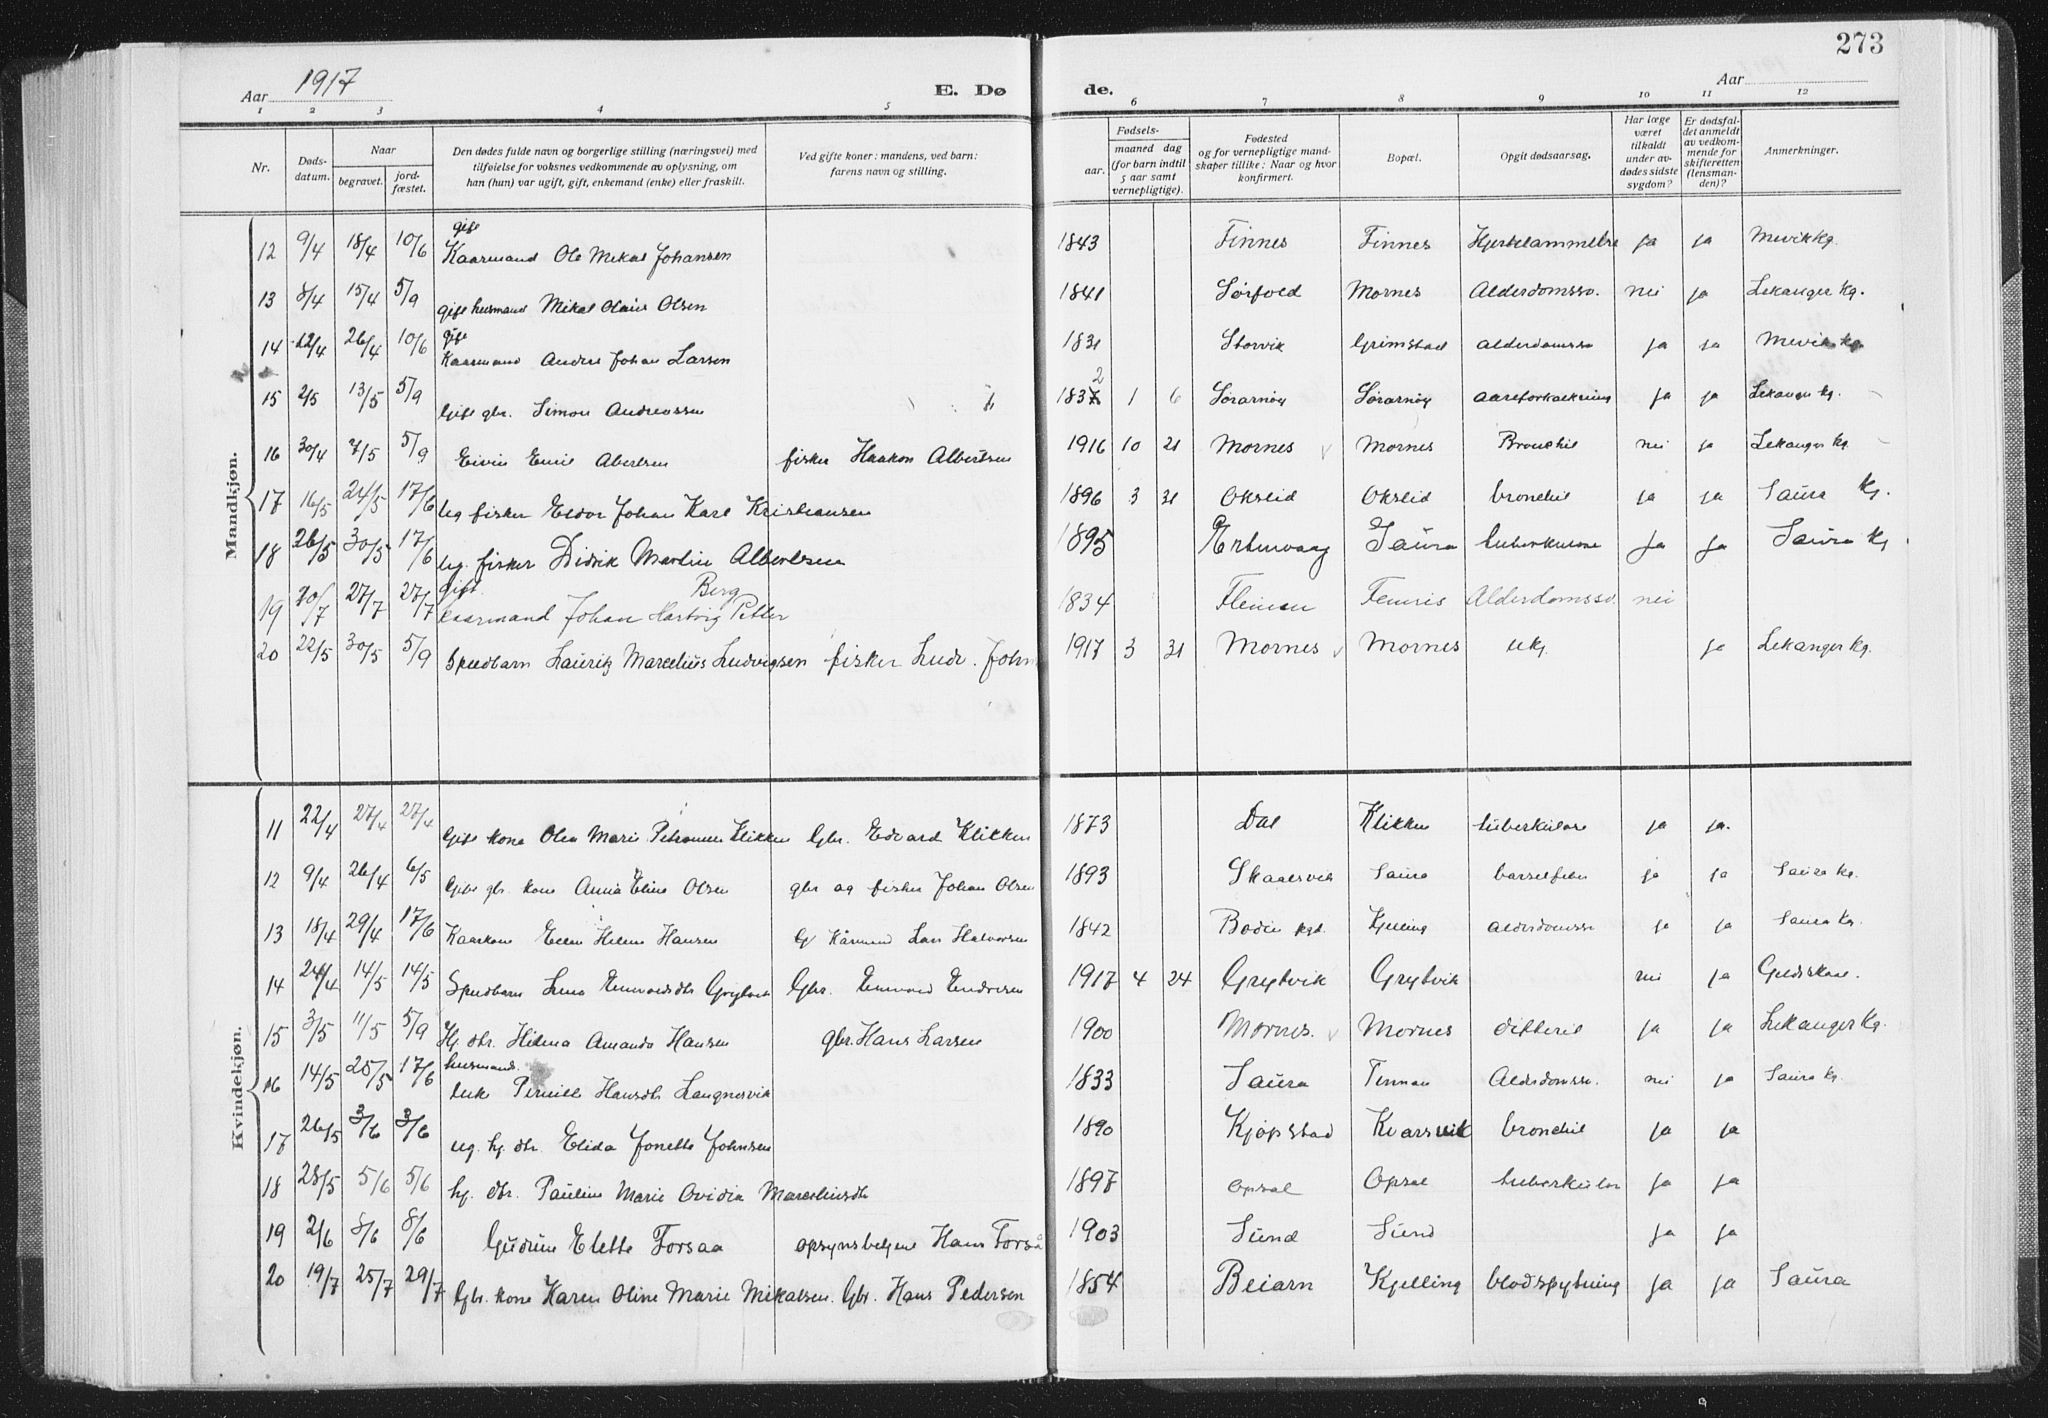 273
Aar 1917
E. Døde.
Aar
1 2 3 4 5 6 7 8 9 10 11 12
Nr.
Døds-datum.
Naar
begravet.
jord-fæstet.
Den dødes fulde navn og borgerlige stilling (næringsvei) med tilføielse for voksnes vedkommende av oplysning, om han (hun) var ugift, gift, enkemand (enke) eller fraskilt.
Ved gifte koner: mandens, ved barn: farens navn og stilling.
Fødsels-
aar.
maaned dag
(for barn indtil 5 aar samt vernepligtige).
Fødested og for vernepligtige mand-skaper tillike: Naar og hvor konfirmert.
Bopæl.
Opgit dødsaarsag.
Har læge været tilkaldt under av-dødes sidste sygdom?
Er dødsfal-det anmeldt av vedkom-mende for skifteretten (lensman-den)?
Anmerkninger.
Mandkjøn.
12 9/4 18/4 10/6 gift Kaarmand Ole Mikal Johansen 1843 Finnes Finnes Hjertelammelse ja ja Mevik kg.
13 8/4 15/4 5/9 gift husmand Mikal Olaus Olsen 1841 Sørfold Mornes Alderdomssv. nei ja Lekanger kg.
14 12/4 26/4 10/6 gift Kaarmand Anders Johan Larsen 1831 Storvik Grimstad alderdomssv ja ja Mevik kg
15 2/5 13/5 5/9 Gift gbr. Simon Andreassen 1832 1 6 Sørarnøy Sørarnøy aareforkalkning ja ja Lekanger kg.
16 30/4 7/5 5/9 Eivin Emil Abertsen fisker Haakon Albertsen 1916 10 21 Mornes Mornes Bronchit nei ja Lekanger kg
17 16/5 24/5 17/6 ug fisker Eldor Johan Karl Kristiansen 1896 3 31 Okslid Okslid bronchit ja ja Saura kg.
18 26/5 30/5 17/6 ug. fisker Didrik Martin Albertsen 1895 Ertenvaag Saura tuberkulose ja ja Saura kg.
19 20/7 27/7 27/7 gift kaarmand Johan Hartvig Petter Berg 1834 Fleinsu Femris Alderdomssv. nei
20 22/5 30/5 5/9 Spedbarn Lauritz Marcelius Ludvigsen fisker Ludv. John 1917 3 31 Mornes Mornes ukj. ja Lekanger kg.
Kvindekjøn.
11 22/4 27/4 27/4 Gift kone Olea Marie Petronne Klikken Gbr. Edvard Klikken 1873 Dal Klikken tuberkulose ja ja.
12 9/4 26/4 6/5 Gift gbr kone Anna Eline Olsen gbr og fisker Johan Olsen 1893 Skaalsvik Saura barselfeber ja ja Saura kg.
13 18/4 29/4 17/6 Kaarkone Ellen Helene Hansen G. Kårmand Lars Halvorsen 1842 Bodin pgd. Kjelling alderdomssv ja ja Saura kg
14 24/4 14/5 14/5 Spedbarn Lina Edvardsdtr Grytvik Gbr. Edvard Endresen 1917 4 24 Grytvik Grytvik nei ja Gildeskaal.
15 3/5 11/5 5/9 Hj. dtr. Hilma Amanda Hansen gbr. Hans Larsen 1900 Mornes. Mornes difteri ja ja Lekanger kg.
16 14/5 25/5 17/6 husmands. enke Pernille Hansdtr Langnesvik 1833 Saura Finnan Alderdomssv. nei ja Saura kg.
17 26/5 3/6 3/6 ug. hj. dtr. Elida Jonette Johnsen 1890 Kjøpstad Kvarsvik bronchit ja ja
18 28/5 5/6 5/6 hj. dtr. Pauline Marie Ovidia Marcelinsdtr 1897 Opsal Opsal tuberkulos ja ja
19 2/6 8/6 8/6 Gudrun Elette Forsaa opsynsbetjent Hans Forså 1903 Sund Sund ja ja
20 19/7 25/7 29/7 Gbr. kone Karen Oline Marie Mikalsen. Gbr. Hans Pedersen 1854 Beiarn Kjelling blodspytning ja ja Saura